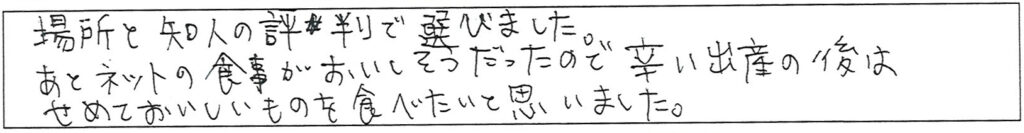 場所と知人の評判りで選びました。
あとネットの食事がおいしそうだったので辛い出産の後は
せめておいしいものを食べたいと思いました。